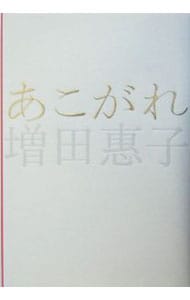 あこがれ
増田惠子